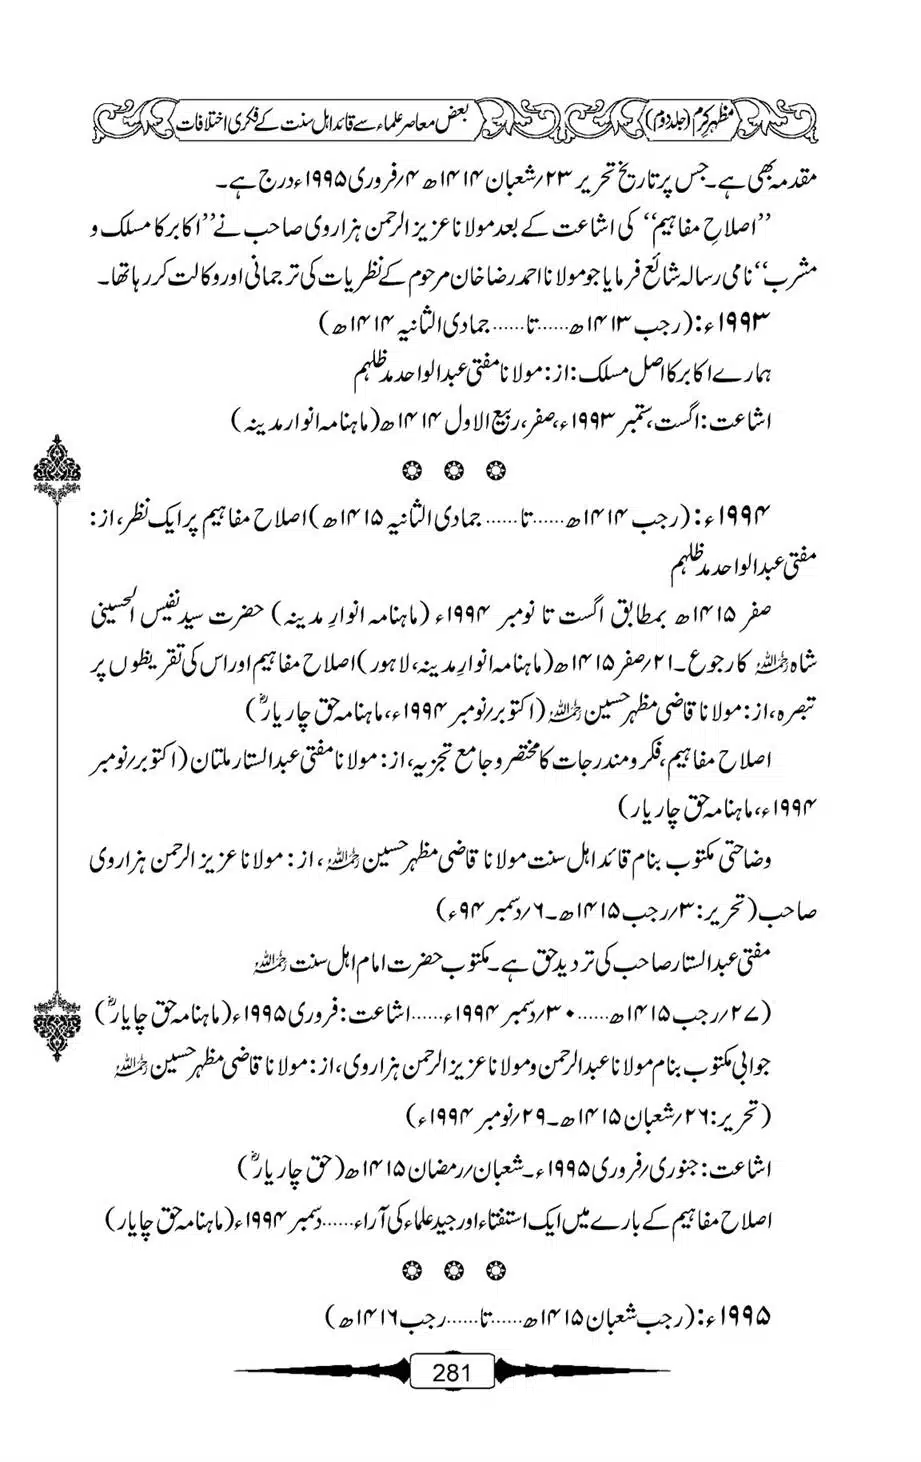 مظہر کرم (جلد دوم)
بعض معاصر علماء سے قائد اہل سنت کے فکری اختلافات
مقدمہ بھی ہے۔ جس پر تاریخ تحریر ۲۳؍شعبان ۱۴۱۴ھ ۴؍فروری ۱۹۹۵ء درج ہے۔
’’اصلاحِ مفاہیم‘‘ کی اشاعت کے بعد مولانا عزیز الرحمن ہزاروی صاحب نے ’’اکابر کا مسلک و
مشرب‘‘ نامی رسالہ شائع فرمایا جو مولانا احمد رضا خان مرحوم کے نظریات کی ترجمانی اور وکالت کر رہا تھا۔
۱۹۹۳ء: (رجب ۱۴۱۳ھ......تا...... جمادی الثانیہ ۱۴۱۴ھ)
ہمارے اکابر کا اصل مسلک: از: مولانا مفتی عبدالواحد مدظلہم
اشاعت: اگست، ستمبر ۱۹۹۳ء، صفر، ربیع الاول ۱۴۱۴ھ (ماہنامہ انوار مدینہ)
۱۹۹۴ء: (رجب ۱۴۱۴ھ......تا...... جمادی الثانیہ ۱۴۱۵ھ) اصلاح مفاہیم پر ایک نظر، از:
مفتی عبدالواحد مدظلہم
صفر ۱۴۱۵ھ بمطابق اگست تا نومبر ۱۹۹۴ء (ماہنامہ انوارِ مدینہ) حضرت سید نفیس الحسینی
شاہ رحمہ اللہ کا رجوع۔ ۲۱؍صفر ۱۴۱۵ھ (ماہنامہ انوارِ مدینہ، لاہور) اصلاح مفاہیم اور اس کی تقریظوں پر
تبصرہ، از: مولانا قاضی مظہر حسین رحمہ اللہ (اکتوبر؍نومبر ۱۹۹۴ء، ماہنامہ حق چار یارؓ)
اصلاح مفاہیم، فکر و مندرجات کا مختصر و جامع تجزیہ، از: مولانا مفتی عبدالستار ملتان (اکتوبر؍نومبر
۱۹۹۴ء، ماہنامہ حق چار یار)
وضاحتی مکتوب بنام قائد اہل سنت مولانا قاضی مظہر حسین رحمہ اللہ، از: مولانا عزیز الرحمن ہزاروی
صاحب (تحریر: ۳؍رجب ۱۴۱۵ھ۔ ۶؍دسمبر ۹۴ء)
مفتی عبدالستار صاحب کی تردید حق ہے۔ مکتوب حضرت امام اہل سنت رحمہ اللہ
(۲۷؍رجب ۱۴۱۵ھ......۳۰؍دسمبر ۱۹۹۴ء......اشاعت: فروری ۱۹۹۵ء (ماہنامہ حق چایارؓ)
جوابی مکتوب بنام مولانا عبدالرحمن و مولانا عزیز الرحمن ہزاروی، از: مولانا قاضی مظہر حسین رحمہ اللہ
(تحریر: ۲۶؍شعبان ۱۴۱۵ھ۔ ۲۹؍نومبر ۱۹۹۴ء)
اشاعت: جنوری؍فروری ۱۹۹۵ء۔ شعبان؍رمضان ۱۴۱۵ھ (حق چار یارؓ)
اصلاح مفاہیم کے بارے میں ایک استفتاء اور جید علماء کی آراء......دسمبر ۱۹۹۴ء (ماہنامہ حق چایار)
۱۹۹۵ء: (رجب شعبان ۱۴۱۵ھ......تا......رجب ۱۴۱۶ھ)
281